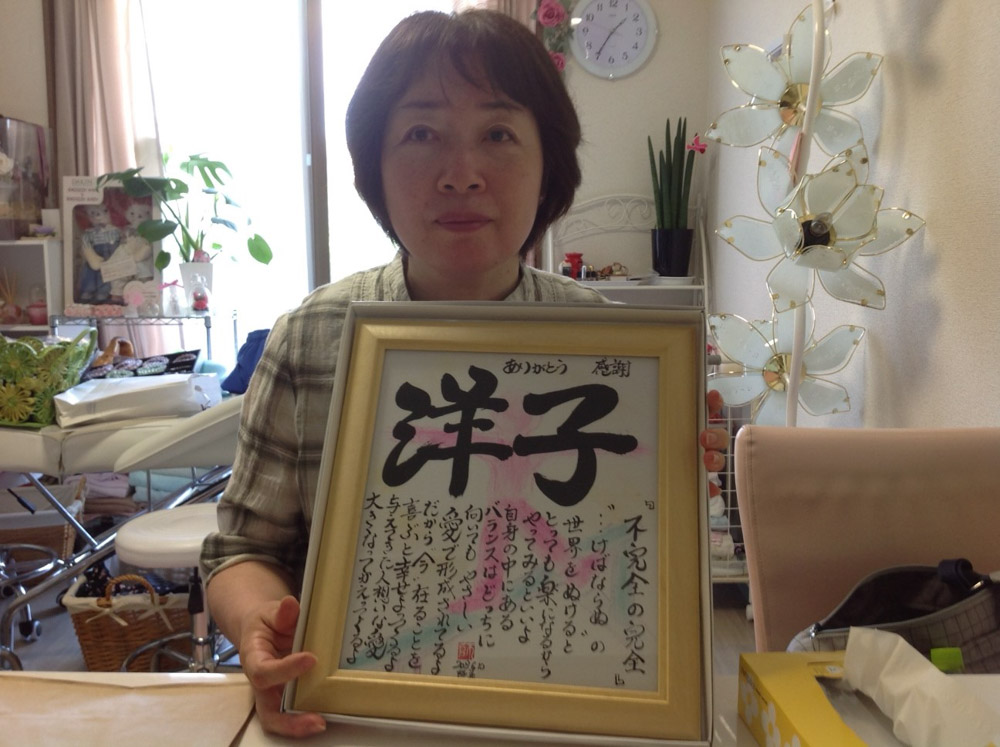 ありがとう 感謝
洋子
『不完全の完全』
"…けばならぬ"の
世界をぬけると
とっても楽になるから
やってみるといいよ
自身の中にある
バランスはどっちに
向いても やさしい
愛で形成されてるよ
だから 今"在ることを
喜ぶと幸せよってくるよ
大きくなってかえってくるよ